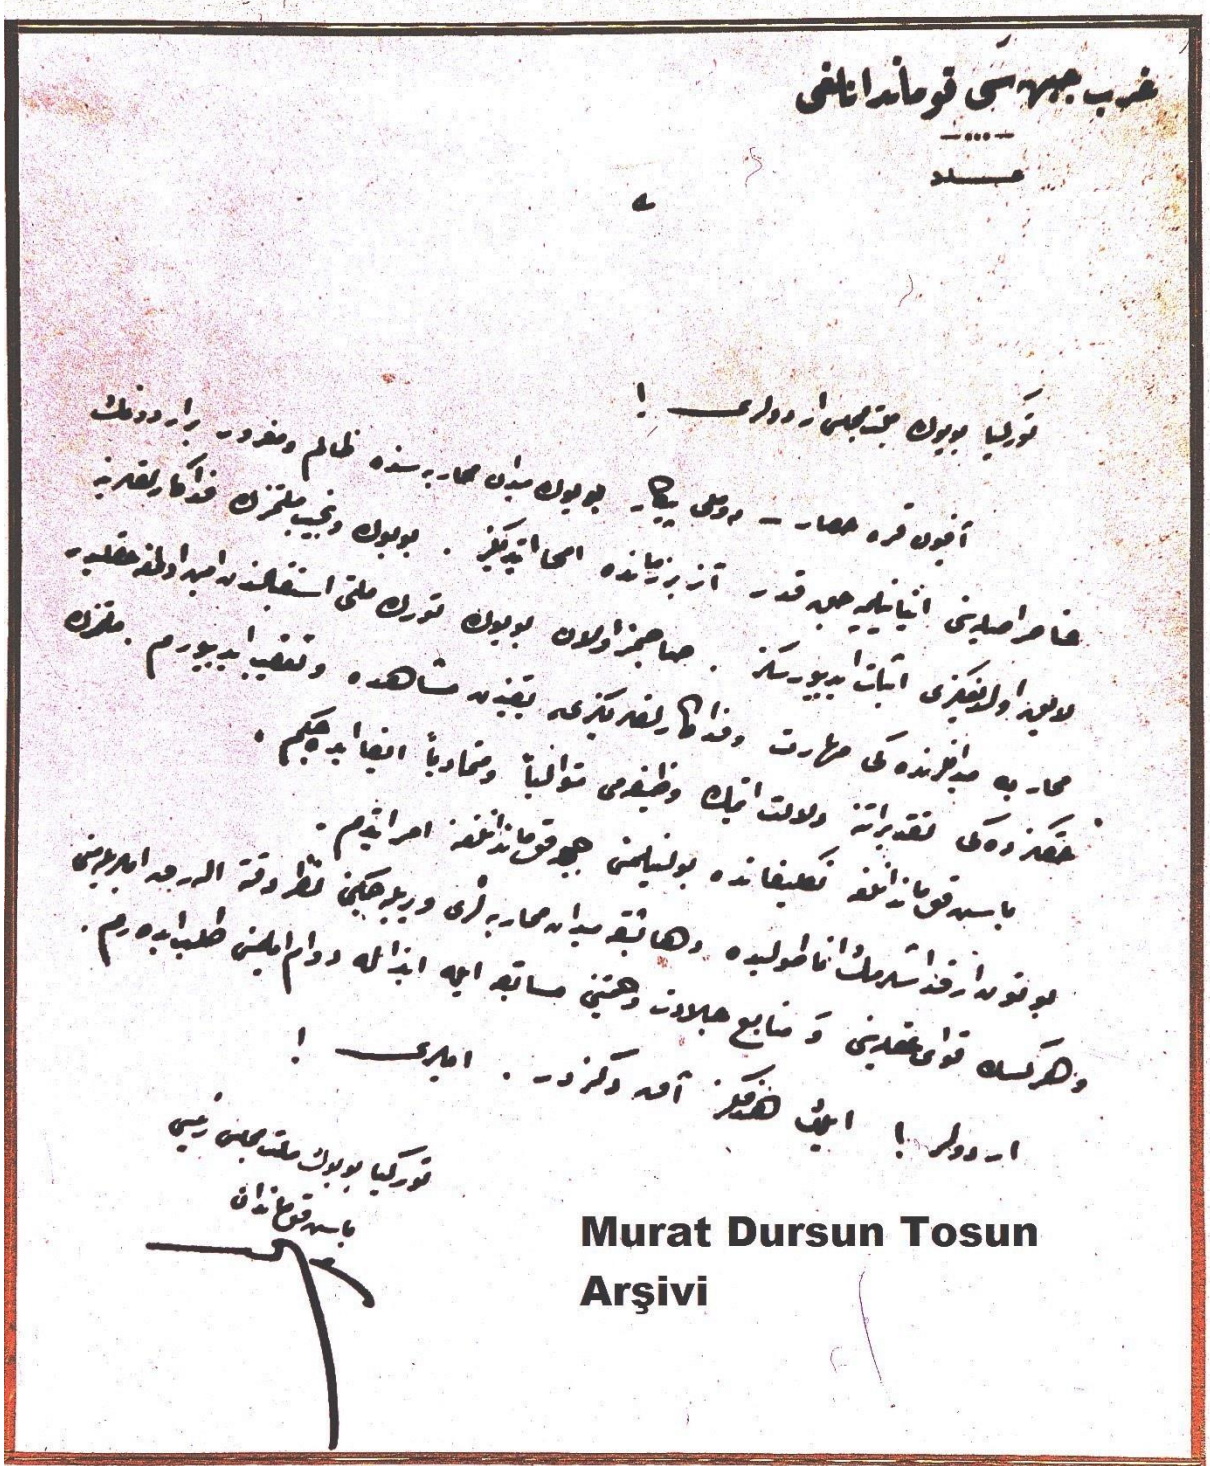 غرب جبهه سی قوماندانلغی
عدد
توركيا بويوك ملت مجلسی اردولری !
آفيون قره حصار – دوملی پيكار بويوك ميدان محاربه سنده ظالم و مغرور بر اردونك
عناصر اصليه سنی اينانيلميه جق قدر آز بر زمانده امحا ايتديكز . بويوك و نجيب ملتمزك فداكارلقلرينه
لايق اولديغكزی اثبات ايدييورسكز . صاحبمز اولان بويوك تورك ملتی استقبالندن امين اولمغه حقليدر
محاربه ميدانلرنده كی مهارت و فداكارلقلريكزی يقيندن مشاهده و تعقيب ايدييورم . ملتمزك
حقكزده كی تقديراتنه دلالت ايتمك وظيفه می متوالياً و متمادياً ايفا ايده جكم .
باش قوماندانلغه تكليفاتده بولنيلمسنی جبهه قوماندانلغنه امر ايتدم .
بوتون آرقداشلرمك آناطولیده داها باشقه ميدان محاربه لری ويريله جكنی نظر دقته آله رق ايلريله مسنی
و هركسك قوای عقليه سنی و منابع جلادت و حميتنی مسابقه ايله ابذاله دوام ايلمسنی طلب ايده رم .
اردولر ! ايلك هدفكز آق دكزدر . ايلری !
توركيا بويوك ملت مجلسی رئيسی
باش قوماندان
Murat Dursun Tosun
Arşivi